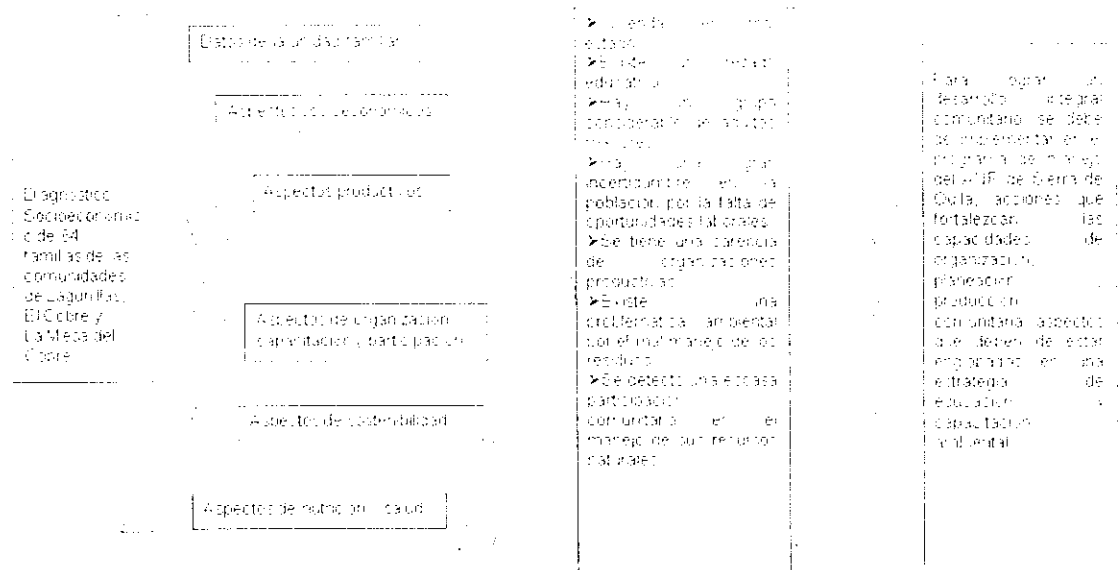 Diagnostico
Socioeconomic
o de 64
familias de las
comunidades
de Lagunillas,
El Cobre y
La Mesa del
Cobre
Datos de la unidad familiar
Aspectos socioeconómicos
Aspectos productivos
Aspectos de organización
capacitación y participación
Aspectos de sostenibilidad
Aspectos de nutrición salud
➤Existe un rezago
educativo
➤Hay un grupo
considerable de adultos
➤Hay una gran
incertidumbre en la
población por la falta de
oportunidades laborales
➤Se tiene una carencia
de organizaciones
productivas
➤Existe una
problemática ambiental
por el mal manejo de los
residuos
➤Se detecto una escasa
participación
comunitaria en el
manejo de sus recursos
naturales
Para lograr un
desarrollo integral
comunitario se debe
de implementar en el
programa de manejo
del de Sierra de
Quila, acciones que
fortalezcan las
capacidades de
organización,
planeación
producción
comunitaria aspectos
que deben de estar
englobadas en una
estrategia de
educación y
capacitación
ambiental